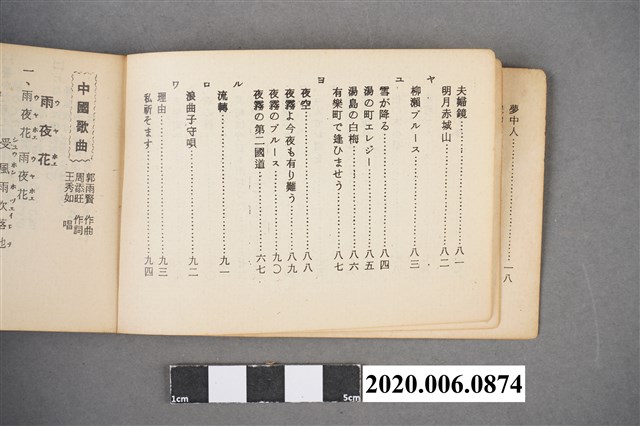 夢中人………一八
夫婦鏡………八一
ヤ
明月赤城山………八二
柳瀬ブルース………八三
ユ
雪が降る………八四
湯の町エレジー………八五
湯島の白梅………八六
有樂町で逢ひませう………八七
ヨ
夜空………八八
夜霧よ今夜も有り難う………八九
夜霧のブルース………九〇
夜霧の第二國道………六七
ル
流轉………九一
ロ
浪曲子守唄………九二
ワ
理由………九三
私祈そます………九四
中國歌曲
郭雨賢 作曲
周添旺 作詞
王秀如 唱
雨夜花
ウヤホエ
一、雨夜花 雨夜花
ウヤホエ ウヤホエ
受風雨吹落地
1cm
5cm
2020.006.0874